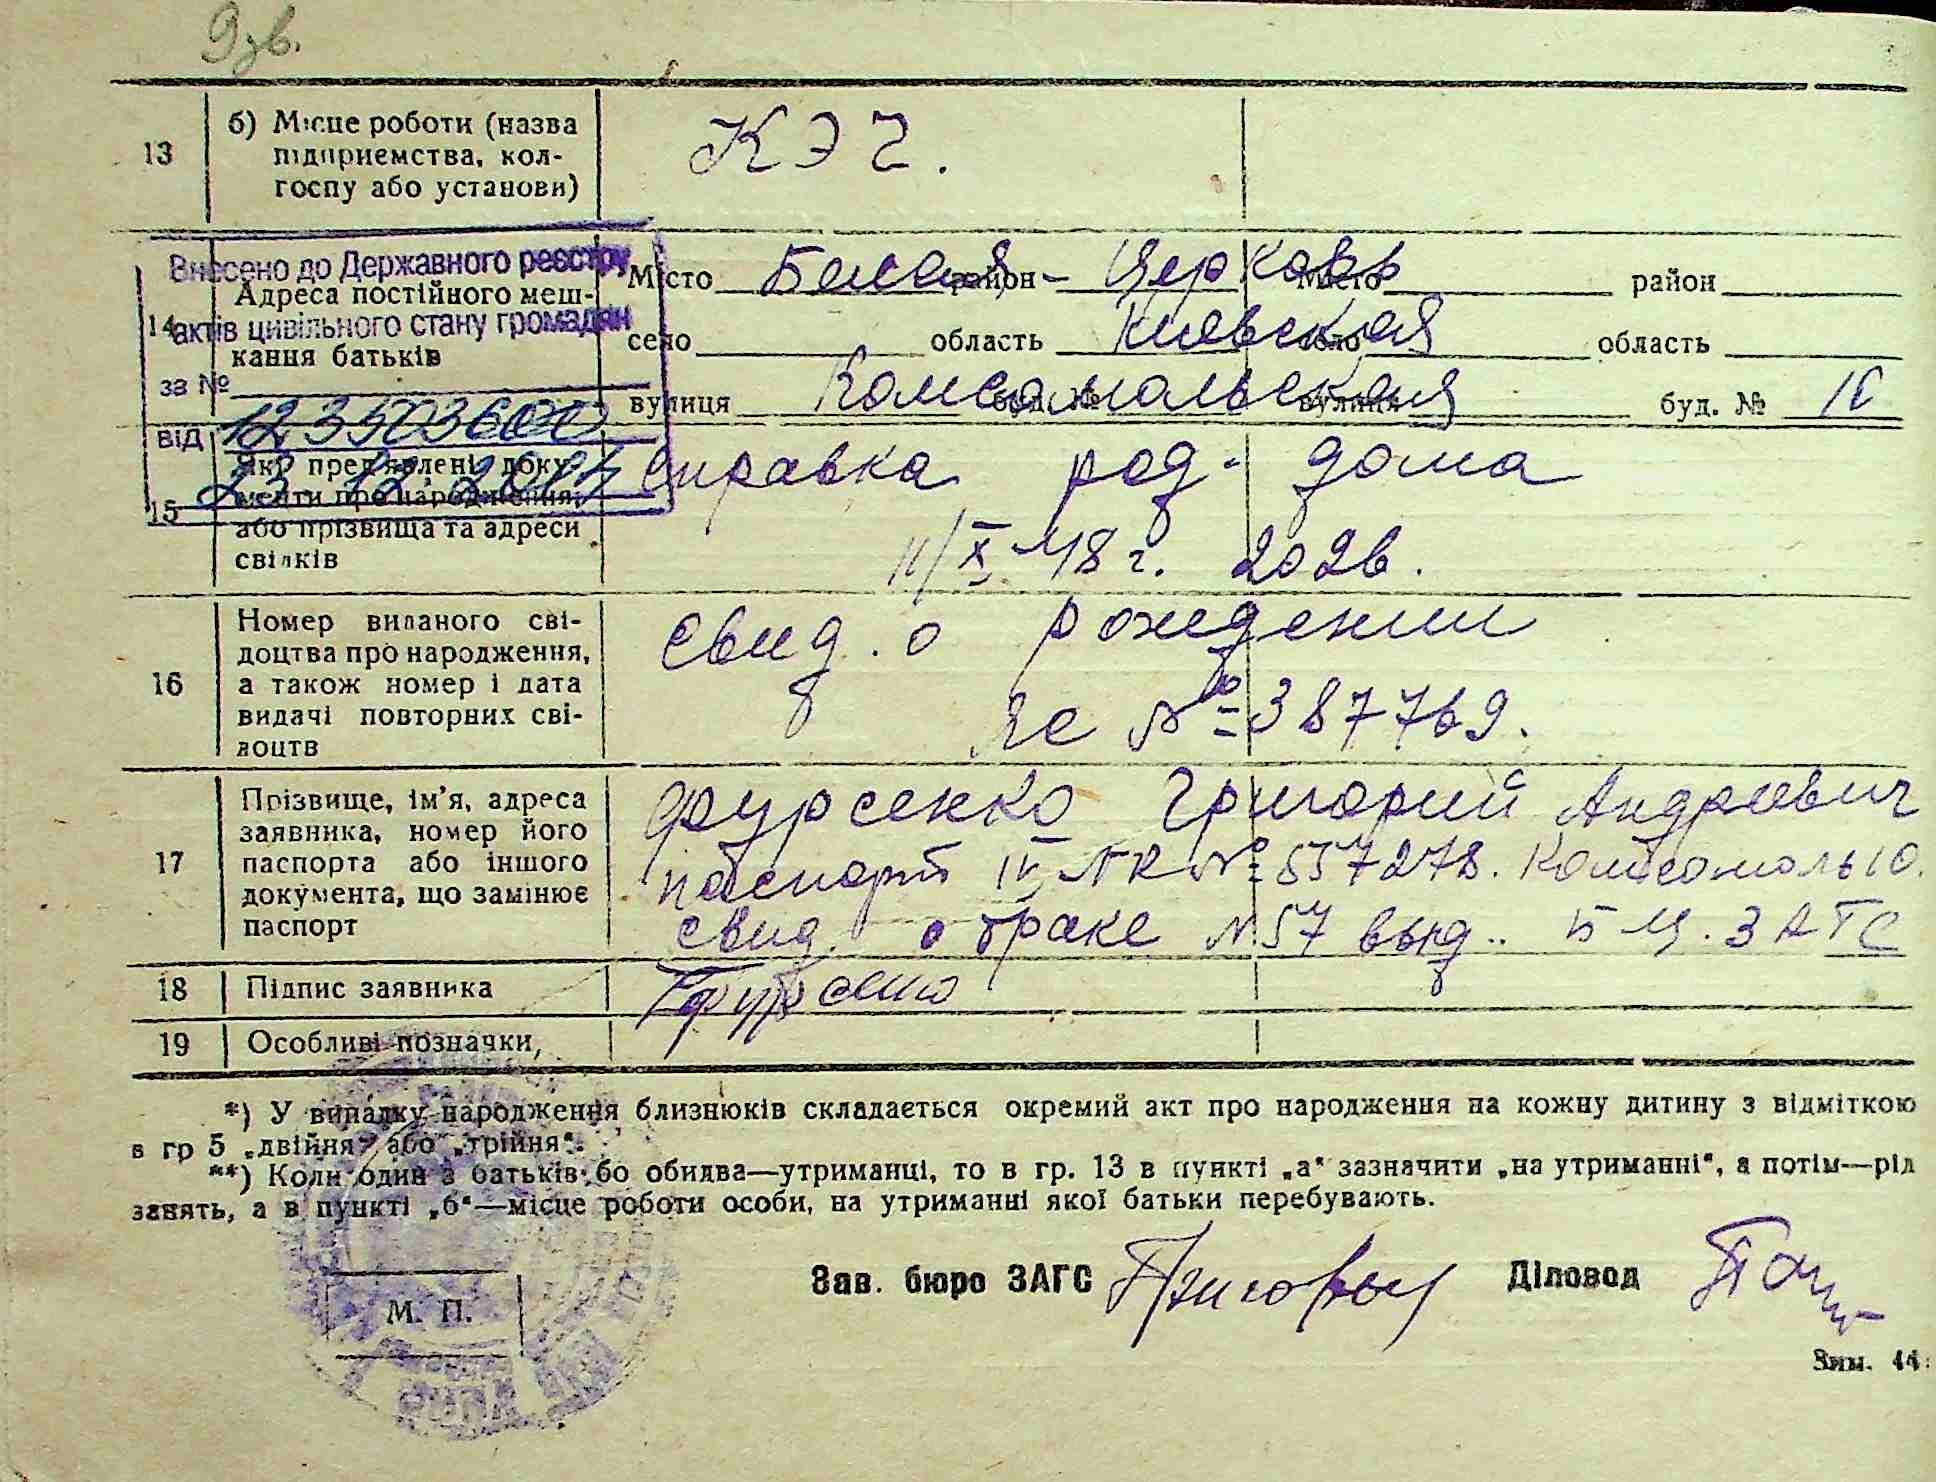 9 зв.
13
б) Місце роботи (назва
підприємства, кол-
госпу або установи)
КЭЧ.
Внесено до Державного реєстру
актів цивільного стану громадян
за №
123503600
від
23.12.2017
14
Адреса постійного меш-
кання батьків
Місто Белая- район Церковь Місто район
село область Киевская село область
вулиця Комсомольская буд. № вулиця буд. №
15
Які пред'явлені доку-
менти про народження,
або прізвища та адреси
свідків
Справка род-дома
11/X 48 г. 2026.
16
Номер виданого сві-
доцтва про народження,
а також номер і дата
видачі повторних сві-
доцтв
Свид. о рождении
№ 387769.
17
Прізвище, ім'я, адреса
заявника, номер його
паспорта або іншого
документа, що замінює
паспорт
Фурсенко Григорий Андреевич
паспорт IV № 557278. Комсомоль 10.
свид. о браке № 57 выд. Б Ц. ЗАГС
18
Підпис заявника
19
Особливі позначки,
*) У випадку народження близнюків складається окремий акт про народження на кожну дитину з відміткою
в гр 5 „двійня“ або „трійня“.
**) Коли один з батьків бо обидва—утриманці, то в гр. 13 в пункті „а“ зазначити „на утриманні“, а потім—рід
занять, а в пункті „б“—місце роботи особи, на утриманні якої батьки перебувають.
Зав. бюро ЗАГС
Діловод
М. П.
Зим. 44